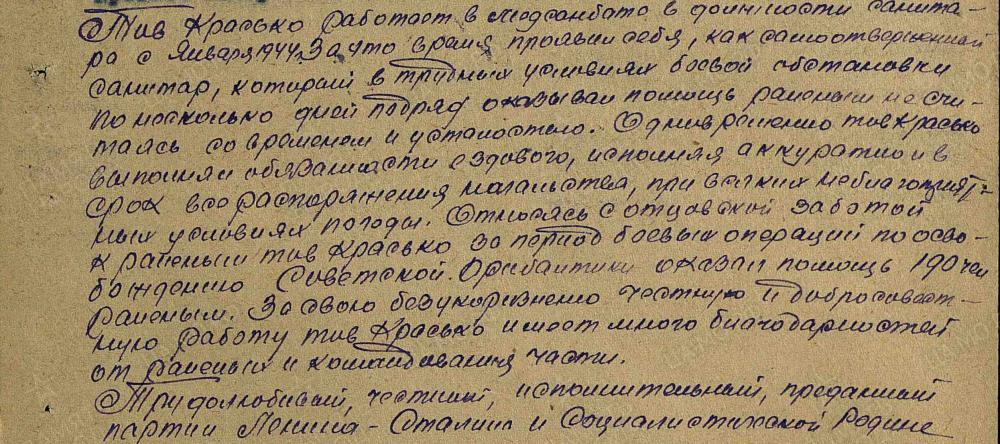 Тов Красько работает в медсанбате в должности санита-
ра с Января 1944г. За это время проявил себя, как самоотверженный
санитар, который в трудных условиях боевой обстановки
по несколько дней подряд оказывал помощь раненым не счи-
таясь со временем и усталостью. Одновременно тов Красько
выполнял обязанности ездового, исполняя аккуратно и в
срок все распоряжения начальства, при всяких неблагоприят-
ных условиях погоды. Относясь с отцовской заботой
к раненым тов Красько за период боевых операций по осво-
бождению Советской Прибалтики оказал помощь 190 чел
раненым. За свою безукоризненно честную и добросовест-
ную работу тов Красько имеет много благодарностей
от раненых и командования части.
Трудолюбивый, честный, исполнительный, преданный
партии Ленина - Сталина и Социалистической Родине